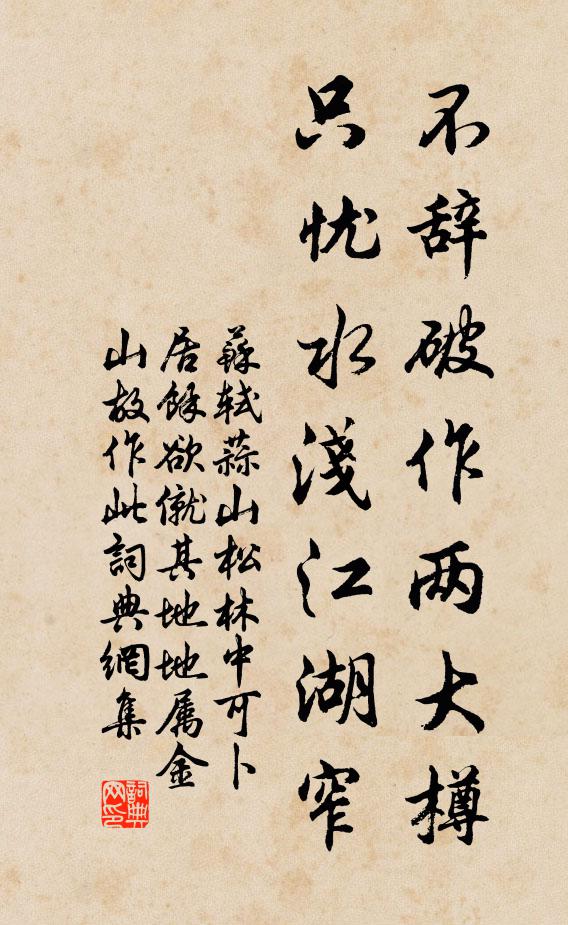 不辞破作两大樽
只忧水淺江湖窄
蘇軾蒜山松林中可卜
居餘欲僦其地地属金
山故作此詞典網集
詞典
网印